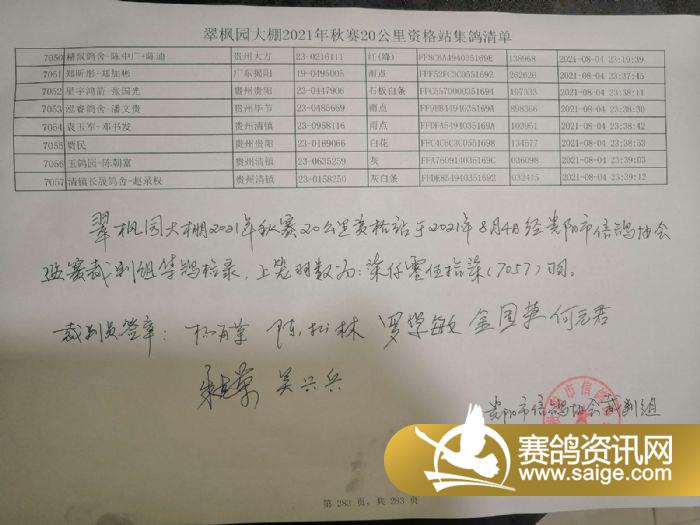 翠枫园大棚2021年秋赛20公里资格站集鸽清单
7050 鸽舍-陈中广+陈迪 贵州大方 23-0216111 红(绛) FF8C6A494035169E 138968 2021-08-04 23:19:39
7051 郑昕彤-郑加彬 广东揭阳 19-0495005 雨点 FFF52FC3C0551692 262626 2021-08-04 23:37:45
7052 星宇鸿箭-张国光 贵州贵阳 23-0447906 石板白条 FFC5570000035169 107333 2021-08-04 23:38:11
7053 泓睿鸽舍-潘文贵 贵州毕节 23-0485669 雨点 898366 2021-08-04 23:38:30
7054 袁玉军-邓书发 贵州清镇 23-0958116 雨点 FFDFA5494035169A 103951 2021-08-04 23:38:42
7055 贾民 贵州贵阳 23-0169066 白花 FFC4C6C3C0551698 134577 2021-08-04 23:38:53
7056 玉鸽园-陈朝富 贵州清镇 23-0635259 灰 FFA760914035169C 036098 2021-08-04 23:39:03
7057 清镇长晟鸽舍-赵录权 贵州清镇 23-0158250 灰白条 FFDE854940351692 032415 2021-08-04 23:39:12
翠枫园大棚2021年秋赛20公里资格站于2021年8月4日经贵阳市信鸽协会
监赛裁判组集鸽检录,上笼羽数为:柒仟零伍拾柒(7057)羽。
裁判员签章: 陈松林 罗学敏 金国英 何元君
吴兴兵
贵阳市信鸽协会裁判组
赛鸽资讯网
www.saige.com
第 283 页，共 283 页